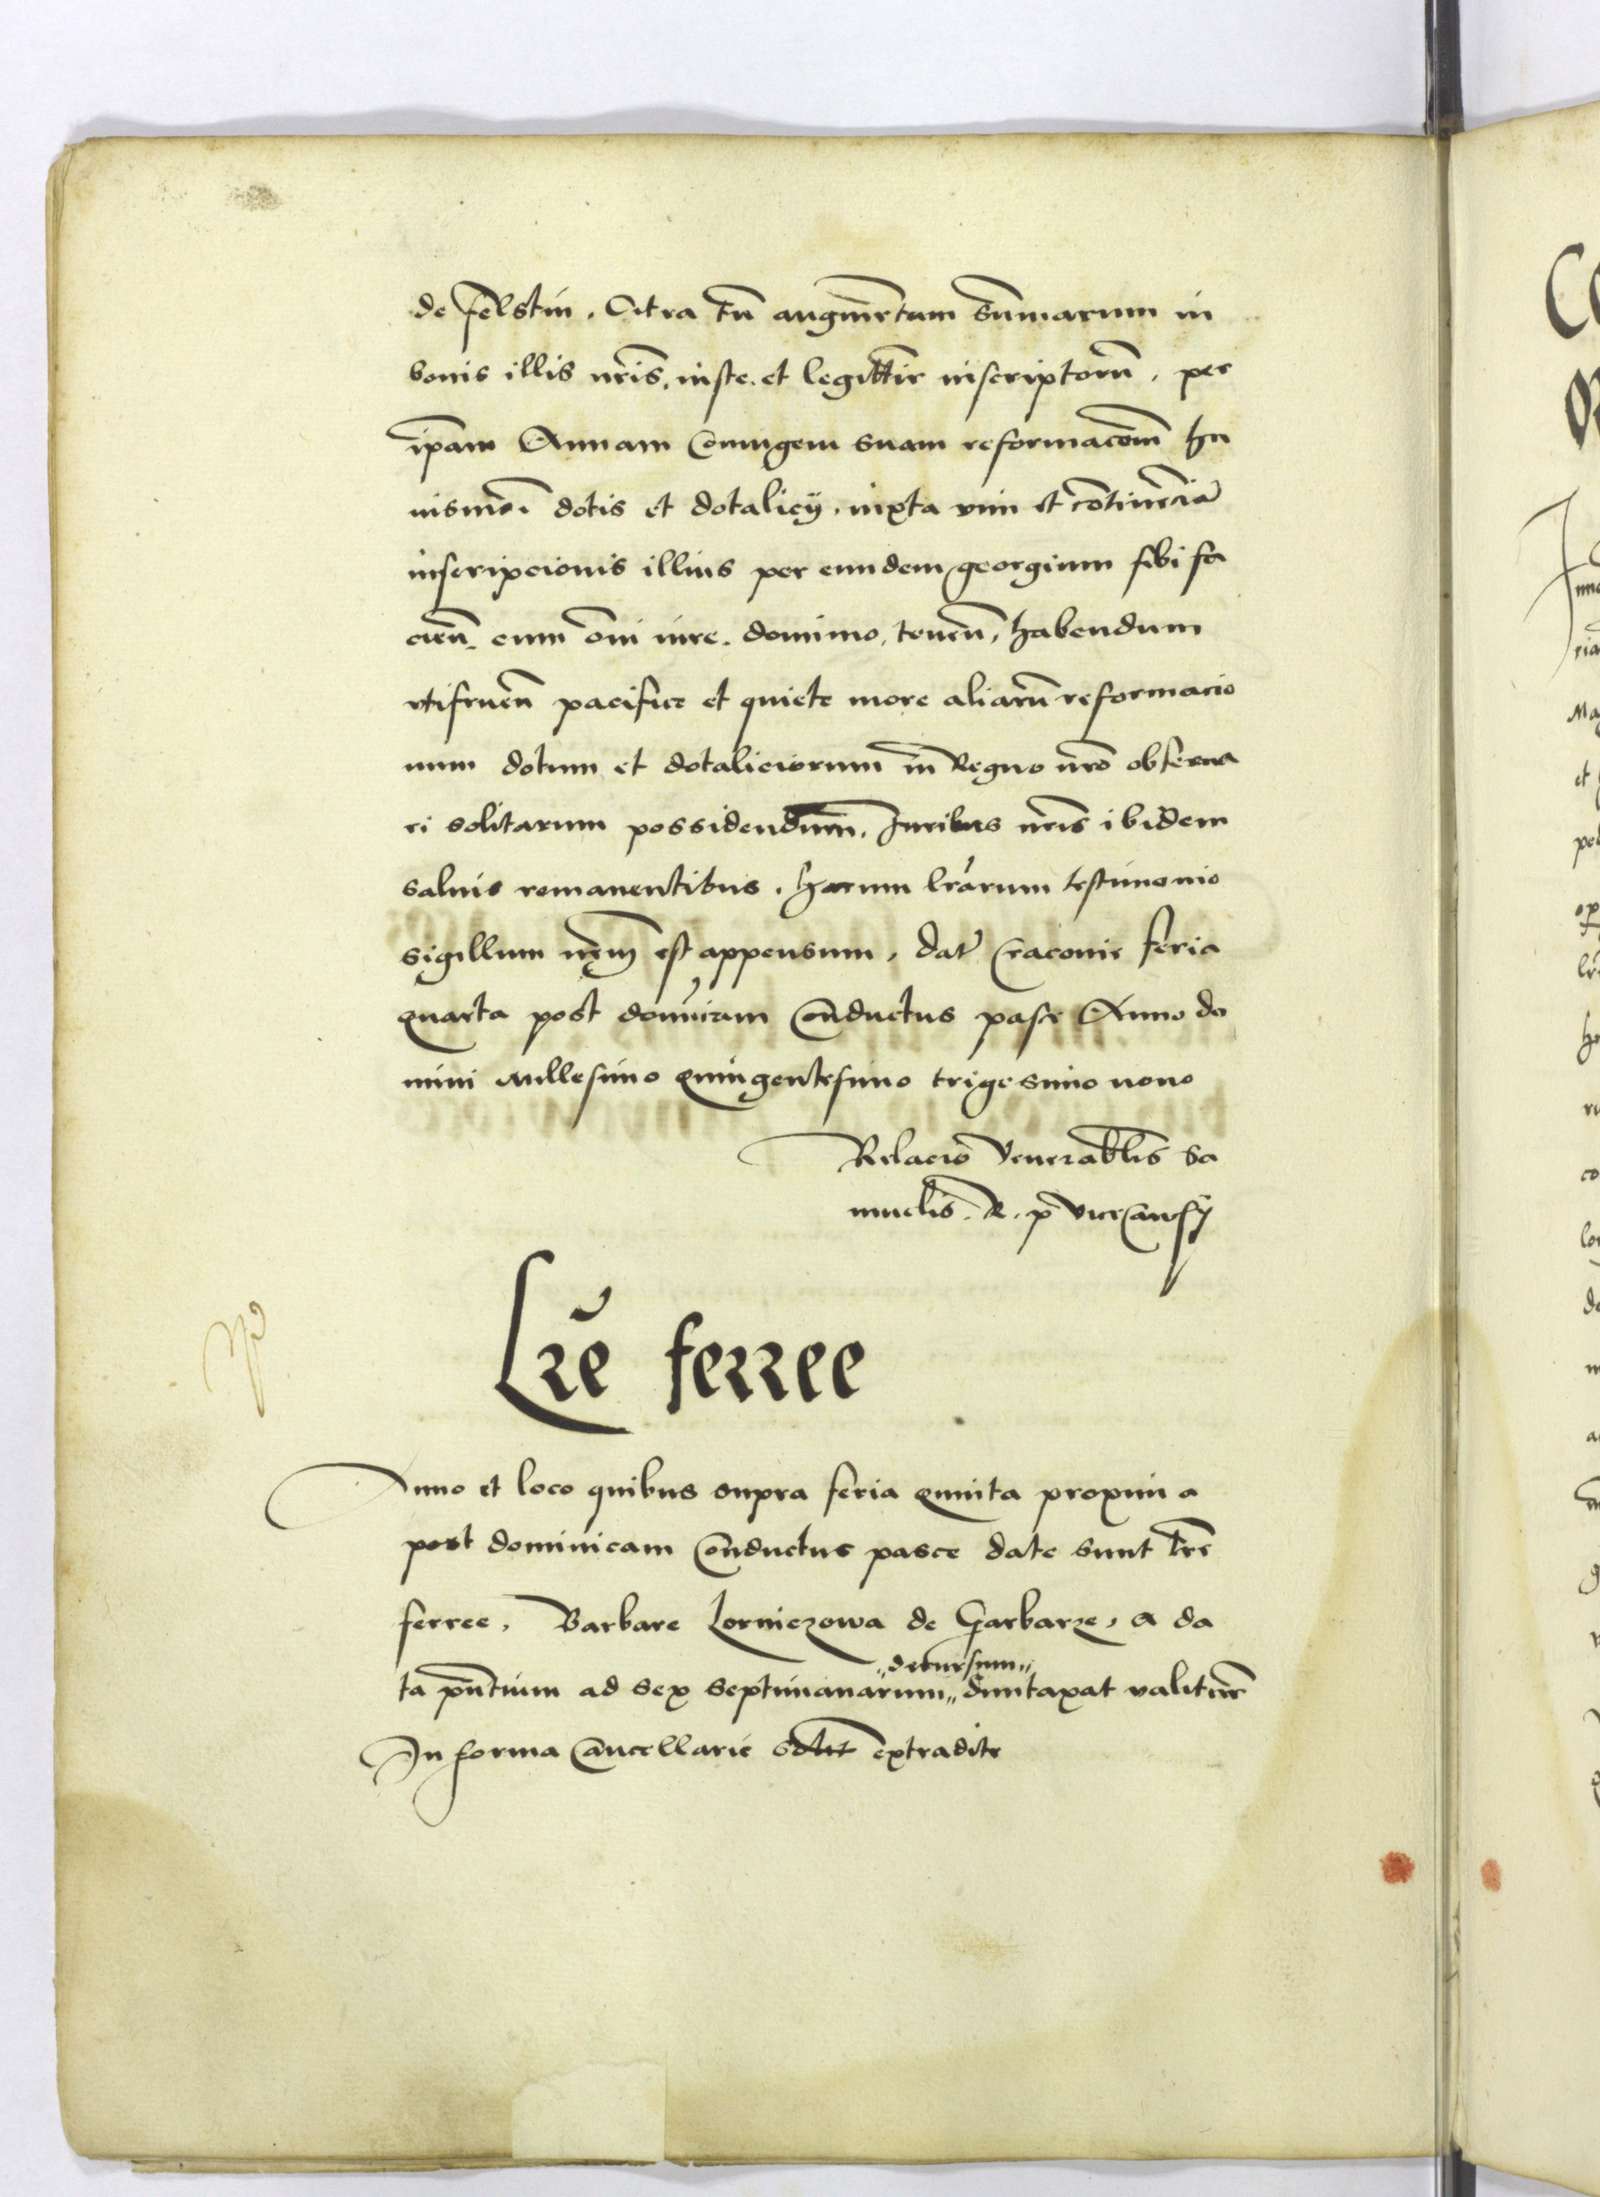 de felstin. Citra tn̄ augmētum sūmarum in
bonis illis nr̄is, iuste et legittīe inscriptorū, per
ip̄am Annam Coniugem suam reformacōm hu
iusmōi dotis et dotalicÿ, iuxta vim et cōtinēciā
inscripcionis illius per eundem georgium sibi fa
cieñ, cum om̄i iure, dominio, teneñ, habendum
vtifrueñ pacifice et quiete more aliarū reformacio
num dotum et dotaliciorum in Regno nr̄o obserua
ri solitarum possidendum. Iuribus nr̄is ibidem
saluis remanentibus. harum lr̄arum testimonio
sigillum nr̄m est appensum. dat̄ Cracouie feria
quarta post dom̄icam Cōnductus pasce Anno do
mini millesimo quingentesimo trigesimo nono
Relacio Venerabīlis Sa
muelis. R. p̄ Vicecancsÿ
Lrē ferree
Anno et loco quibus supra feria quinta proxima
post dominicam Cōnductus pasce date sunt lr̄e
ferree, Barbare Lorniczowa de Garbarze, a da
„decursum„
ta pn̄tium ad sex septimanarum„ duntaxat valiture
In forma Cancellarie solit̄ extradite